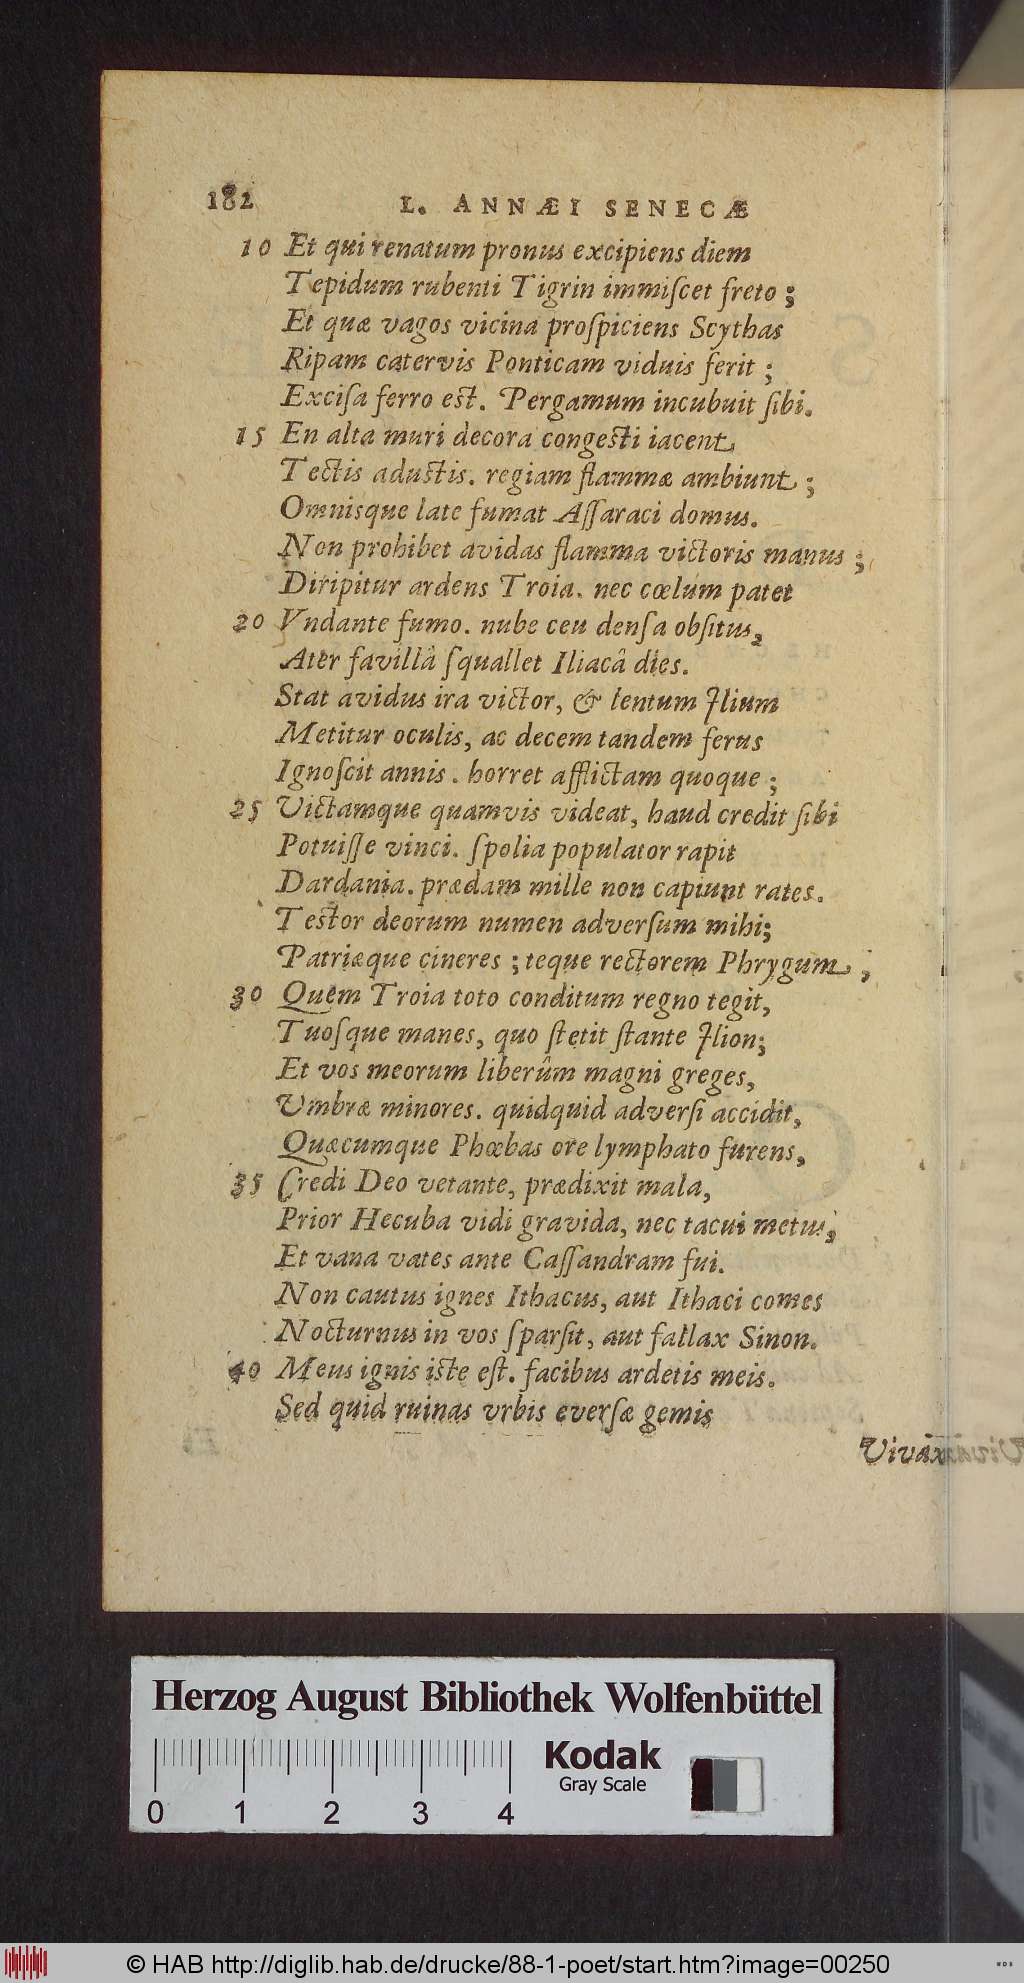 182 L. ANNÆI SENECÆ
10 Et qui renatum pronus excipiens diem
Tepidum rubenti Tigrin immiſcet freto ;
Et quæ vagos vicina proſpiciens Scythas
Ripam catervis Ponticam viduis ferit ;
Exciſa ferro est. Pergamum incubuit ſibi.
15 En alta muri decora congesti iacent
Tectis adustis. regiam flammæ ambiunt ;
Omnisque late fumat Aſſaraci domus.
Non prohibet avidas flamma victoris manus ;
Diripitur ardens Troia. nec cœlum patet
20 Vndante fumo. nube ceu denſa obſitus,
Ater favillâ ſquallet Iliacâ dies.
Stat avidus ira victor, & lentum Ilium
Metitur oculis, ac decem tandem ferus
Ignoſcit annis. horret afflictam quoque ;
25 Victamque quamvis videat, haud credit ſibi
Potuiſſe vinci. ſpolia populator rapit
Dardania. prædam mille non capiunt rates.
Testor deorum numen adverſum mihi;
Patriæque cineres ; teque rectorem Phrygum ;
30 Quem Troia toto conditum regno tegit,
Tuoſque manes, quo ſtetit ſtante Ilion;
Et vos meorum liberûm magni greges,
Vmbræ minores. quidquid adverſi accidit,
Quæcumque Phœbas ore lymphato furens,
35 Credi Deo vetante, prædixit mala,
Prior Hecuba vidi gravida, nec tacui metus,
Et vana vates ante Caſſandram fui.
Non cautus ignes Ithacus, aut Ithaci comes
Nocturnus in vos ſparſit, aut fallax Sinon.
40 Meus ignis iste eſt. facibus ardetis meis.
Sed quid ruinas vrbis everſæ gemis
Vivax
Herzog August Bibliothek Wolfenbüttel
Kodak
Gray Scale
0 1 2 3 4
© HAB http://diglib.hab.de/drucke/88-1-poet/start.htm?image=00250